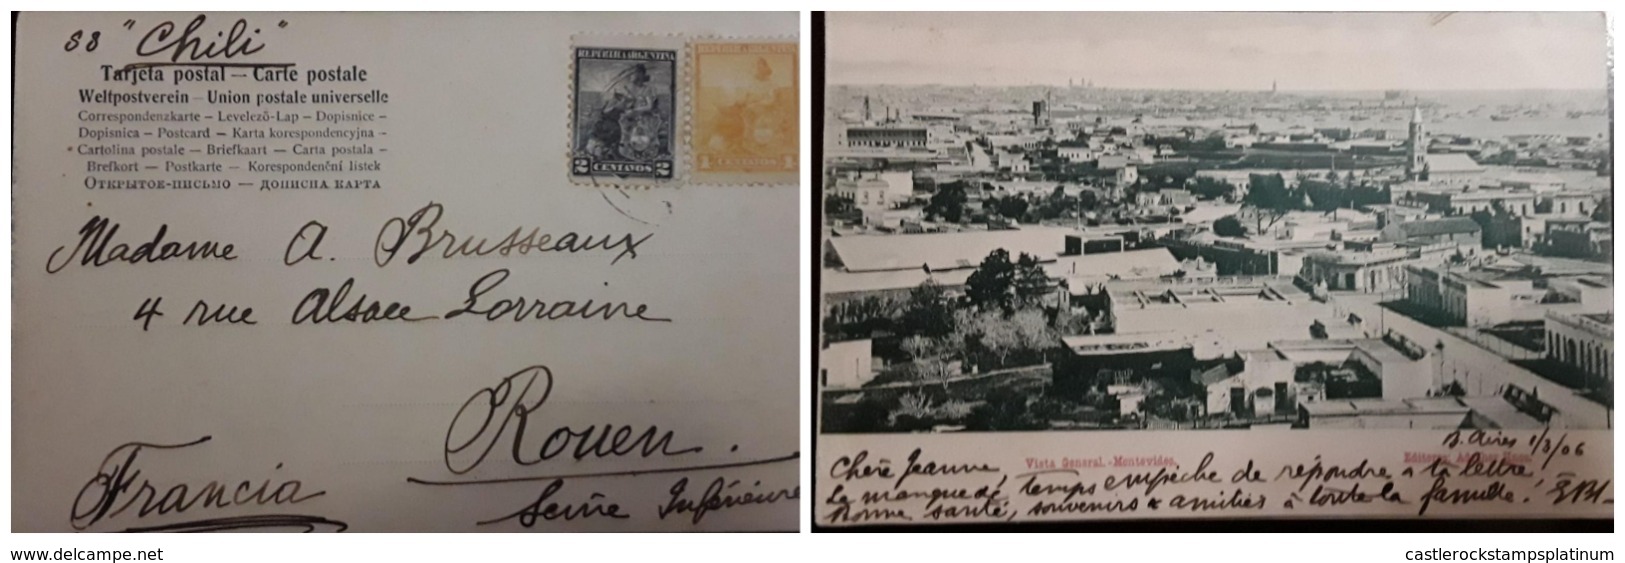 SS "Chili"
Tarjeta postal — Carte postale
Weltpostverein — Union postale universelle
Correspondenzkarte — Levelező-Lap — Dopisnice –
Dopisnica — Postcard — Karta korespondencyjna –
Cartolina postale — Briefkaart — Carta postala –
Brefkort — Postkarte — Korespondenční lístek
Открытое-письмо — дописна карта
REPUBLICA ARGENTINA
2 CENTAVOS 2
1 CENTAVO 1
Madame A. Brusseaux
4 rue Alsace Lorraine
Rouen.
Seine Inférieure
Francia
B. Aires 1/3/06
Vista General.-Montevideo.
Editores:
Chère Jeanne
Le manque de temps empêche de répondre à ta lettre
Bonne santé, souvenirs & amitiés à toute la famille!
www.delcampe.net
castlerockstampsplatinum